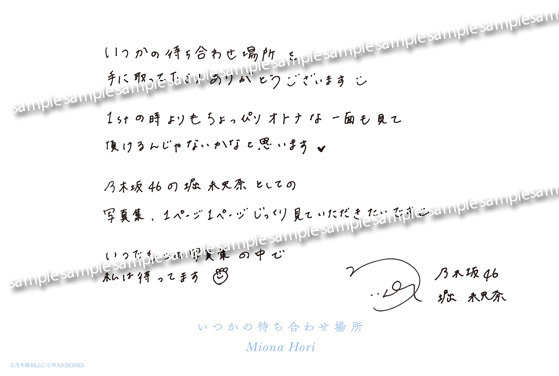 いつかの待ち合わせ場所を
手に取ってくださりありがとうございます
1stの時よりもちょっぴりオトナな一面も見て
頂けるんじゃないかなと思います
乃木坂46の堀 未央奈としての
写真集、1ページ1ページじっくり見ていただきたいです
いつだって写真集の中で
私は待ってます
乃木坂46
堀 未央奈
いつかの待ち合わせ場所
Miona Hori
sample sample sample sample sample sample sample sample
sample sample sample sample sample sample sample sample
sample sample sample sample sample sample sample sample
sample sample sample sample sample sample sample sample